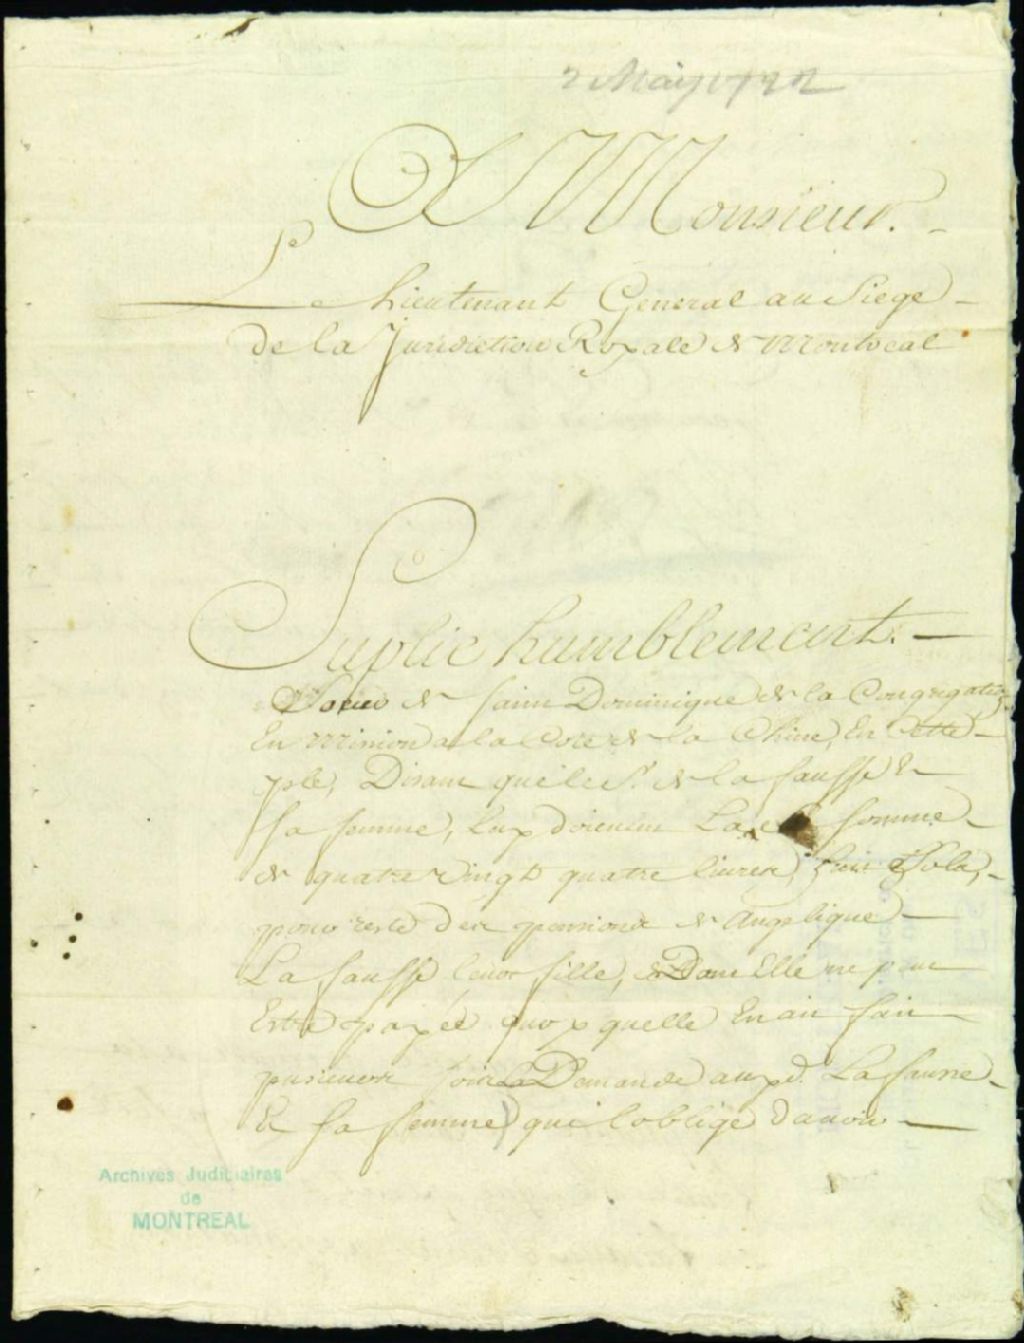 2 May 1722
A Monsieur.
Le Lieutenant General au Siege
de la Juridiction Royale de Montreal
Suplie humblement.
Soeur de Saint Dominique de la Congregaon
En mission a la Coste de la Chine, En Cette
Isle, Disant que le Sr. de la fausse Et
sa femme, luy doivent La somme
de quatre Vingt quatre livres, huit Sols,
pour reste des pensions de Angelique
La fausse leur fille, Dont Elle ne peut
Estre payée quoy quelle En ait fait
pusieurs fois La Demande aux pd. La fausse
Et sa femme, qui loblige davoir
Archives Judiciaires
de
MONTREAL